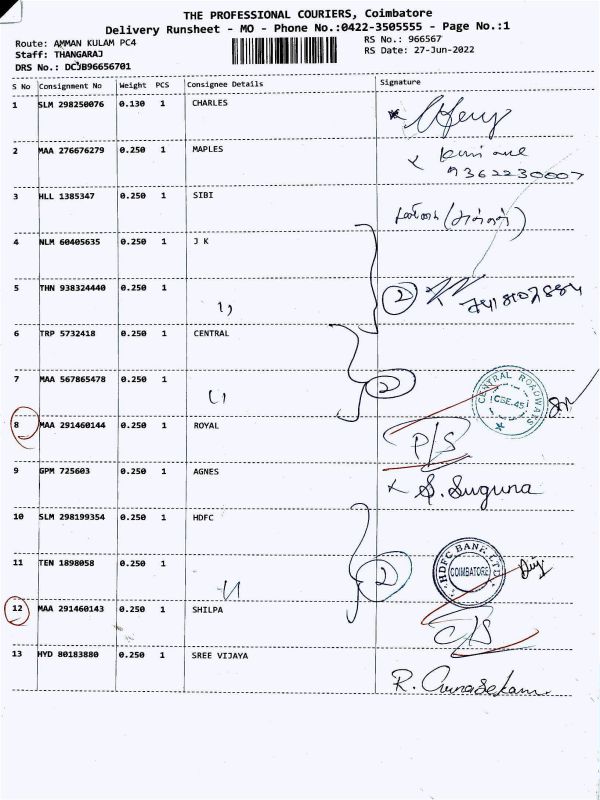 THE PROFESSIONAL COURIERS, Coimbatore
Delivery Runsheet - MO - Phone No.:0422-3505555 - Page No.:1
Route: AMMAN KULAM PC4
RS No.: 966567
Staff: THANGARAJ
RS Date: 27-Jun-2022
DRS No.: DCJB96656701
S No Consignment No Weight PCS Consignee Details Signature
1 SLM 298250076 0.130 1 CHARLES
2 MAA 276676279 0.250 1 MAPLES
9362230007
3 HLL 1385347 0.250 1 SIBI
4 NLM 60405635 0.250 1 J K
5 THN 938324440 0.250 1 2
6 TRP 5732418 0.250 1 CENTRAL
7 MAA 567865478 0.250 1 2
CENTRAL ROADWAYS
CBE-45
8 MAA 291460144 0.250 1 ROYAL P/S
9 GPM 725603 0.250 1 AGNES S. Suguna
10 SLM 298199354 0.250 1 HDFC
11 TEN 1898058 0.250 1 2
HDFC BANK LTD
COIMBATORE
12 MAA 291460143 0.250 1 SHILPA
13 HYD 80183880 0.250 1 SREE VIJAYA
R. Gunasekaran